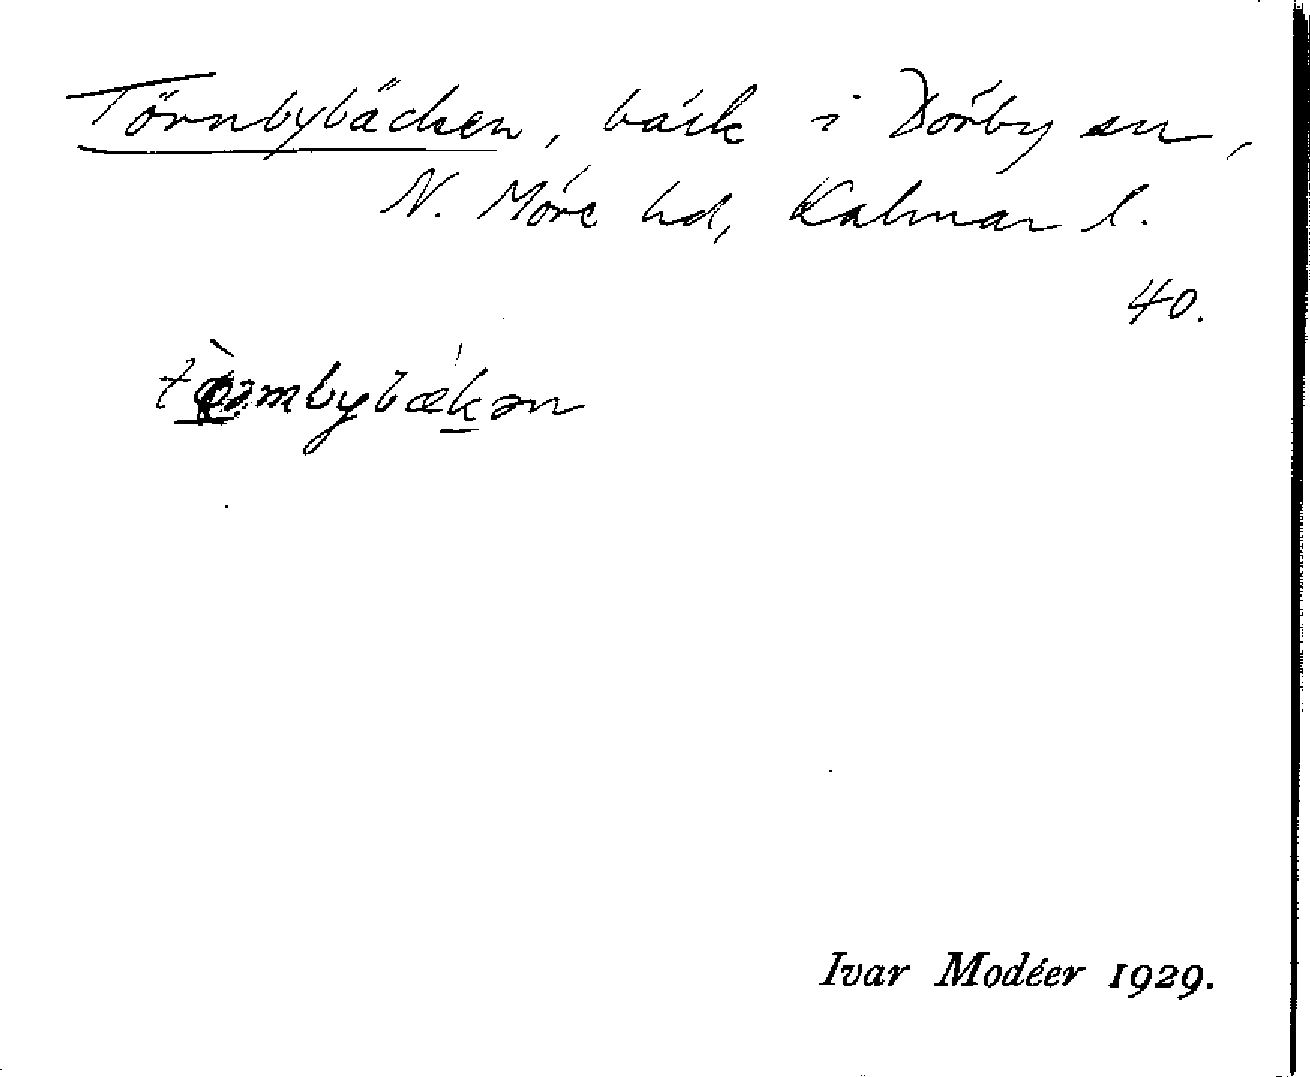 Törnbybäcken, bäck i Dörby sn,
N. Möre hd, Kalmar l.
40.
Ivar Modéer 1929.